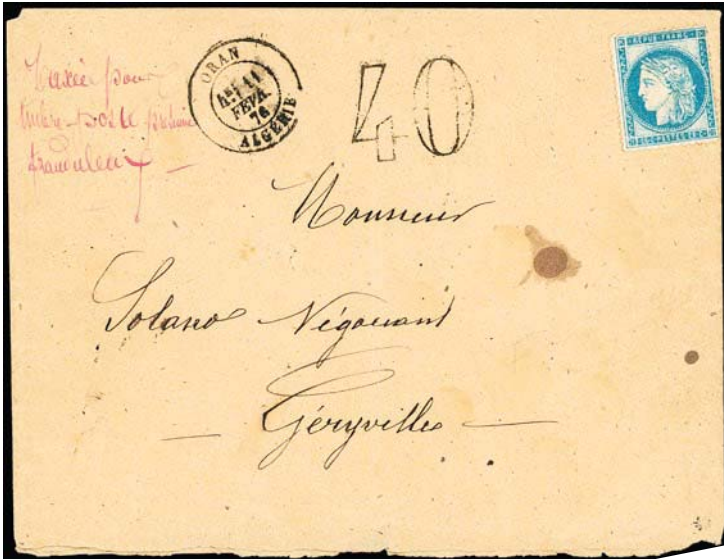 Taxée pour
timbre-poste présumé
frauduleux
ORAN
11
FEVR.
76
ALGÉRIE
40
REPUB. FRANC.
POSTES
Monsieur
Solano Négociant
Géryville